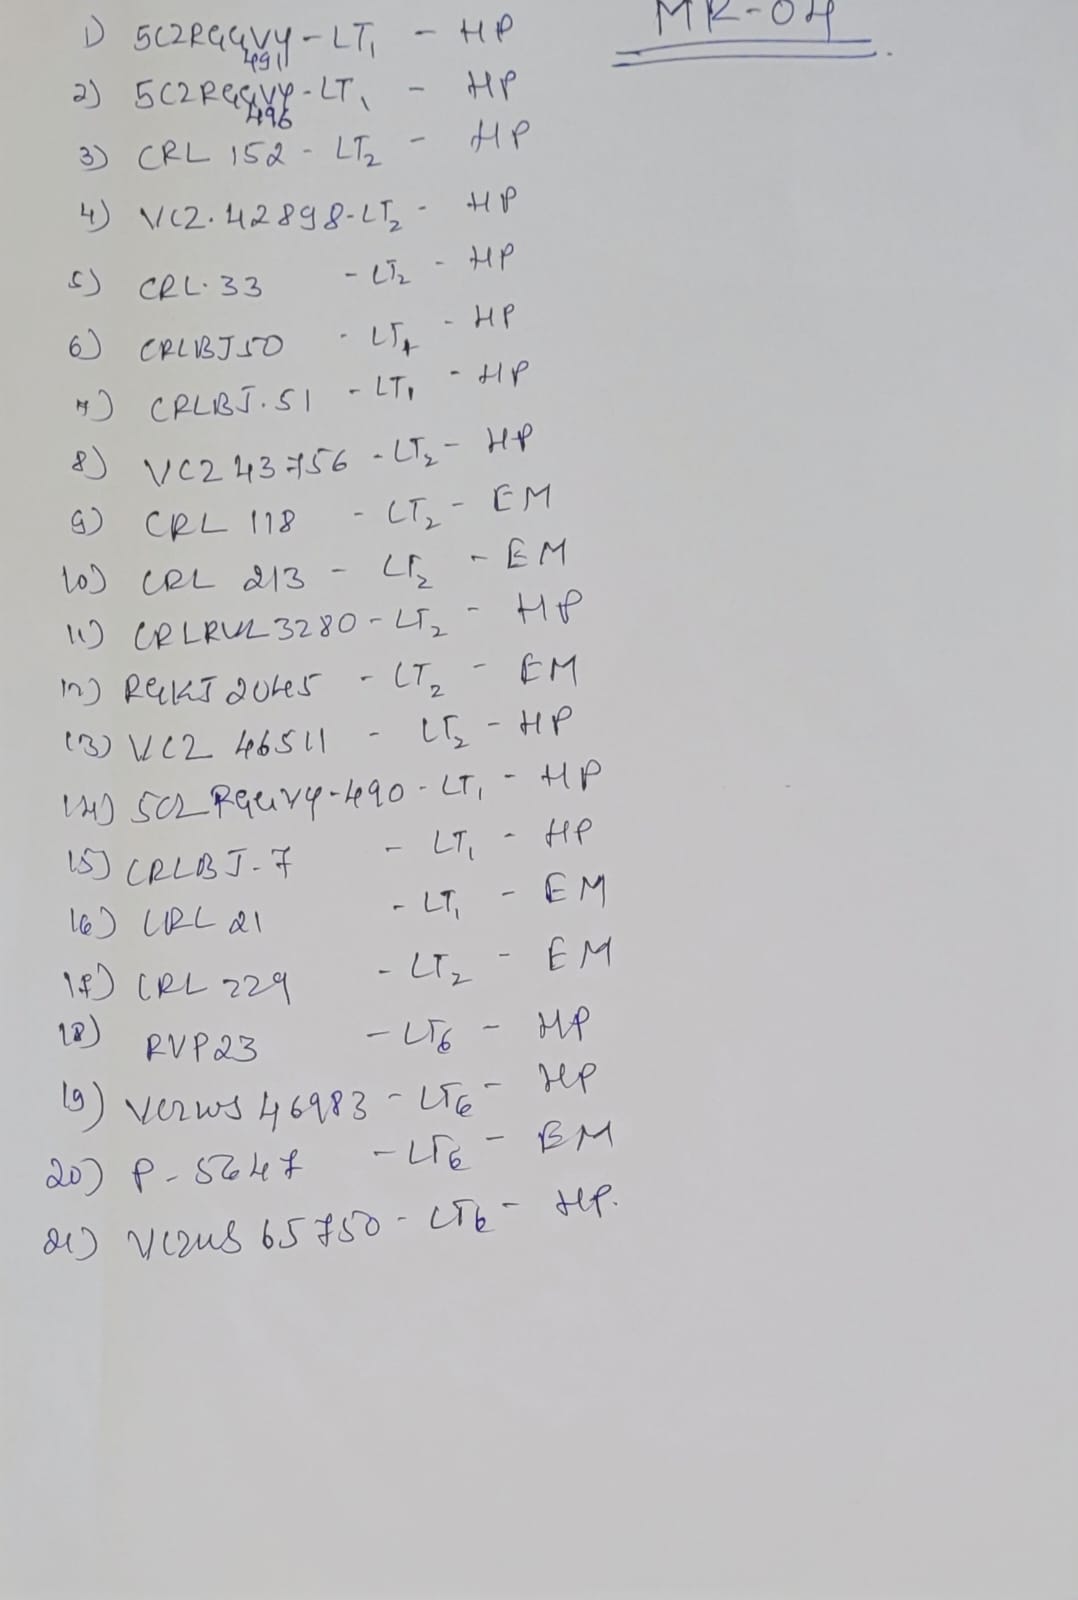 MR-04
1) 5C2RGGVY - LT1 - HP
491
2) 5C2RGGVY - LT1 - HP
496
3) CRL 152 - LT2 - HP
4) VCZ. 42898 - LT2 - HP
5) CRL. 33 - LT2 - HP
6) CRLBJ50 - LT1 - HP
7) CRLBJ. 51 - LT1 - HP
8) VCZ 43756 - LT2 - HP
9) CRL 118 - LT2 - EM
10) CRL 213 - LT2 - EM
11) CRLRVL3280 - LT2 - HP
12) RGKJ2045 - LT2 - EM
13) VCZ 46511 - LT2 - HP
14) 5C2RGGVY-490 - LT1 - HP
15) CRLBJ-7 - LT1 - HP
16) CRL 21 - LT1 - EM
17) CRL 229 - LT2 - EM
18) RVP23 - LT6 - HP
19) VCZWS 46983 - LT6 - HP
20) P-5647 - LT6 - EM
21) VCZWS 65750 - LT6 - HP.